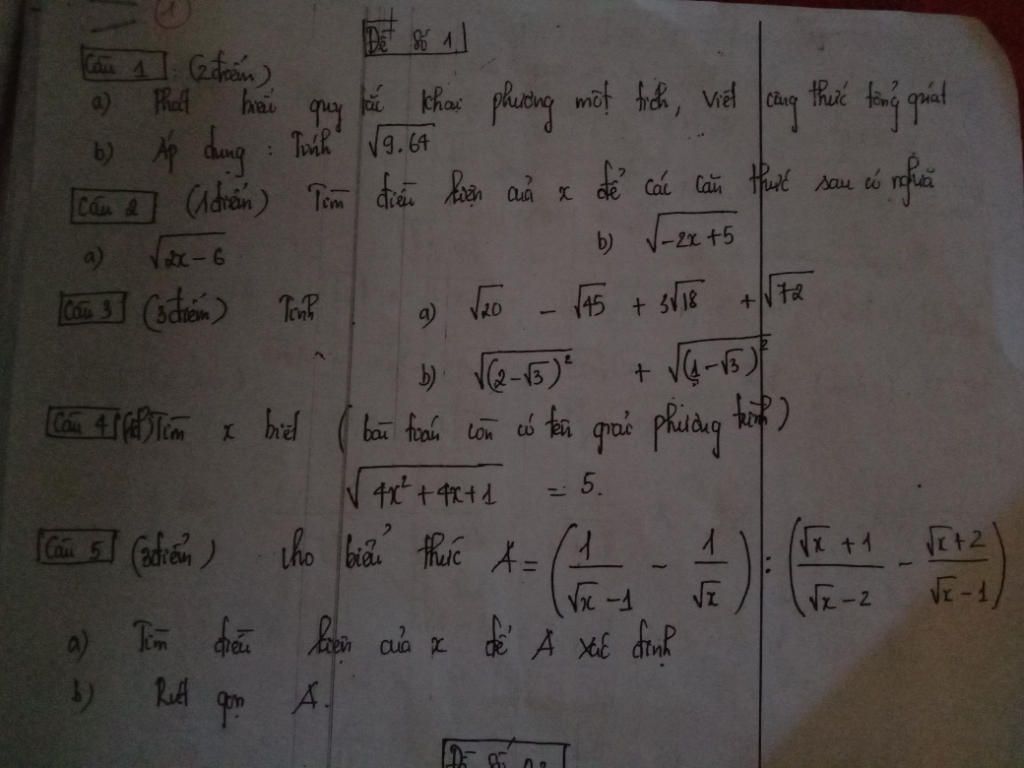 1
Đề số 1
Câu 1 : (2 điểm)
a) Phát biểu quy tắc khai phương một tích, Viết công thức tổng quát
b) Áp dụng : Tính √9.64
Câu 2 (1 điểm) Tìm điều kiện của x để các căn thức sau có nghĩa
a) √2x-6 b) √-2x+5
Câu 3 (3 điểm) Tính a) √20 - √45 + 3√18 + √72
b) √(2-√3)² + √(1-√3)²
Câu 4 (1đ) Tìm x biết ( bài toán còn có tên giải phương trình )
√4x²+4x+1 = 5.
Câu 5 (3 điểm) Cho biểu thức A = (1/(√x-1) - 1/√x) : ((√x+1)/(√x-2) - (√x+2)/(√x-1))
a) Tìm điều kiện của x để A xác định
b) Rút gọn A.
Đề số